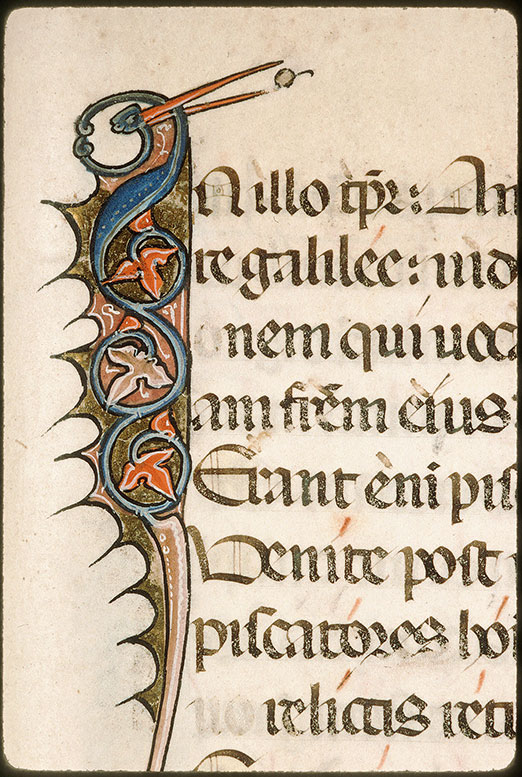 IN illo tp̅r: Am
re galilee: uid
onem qui uoca
am fr̅em eius:
Erant eni pis
Venite post
piscatores hoi
relictis reti